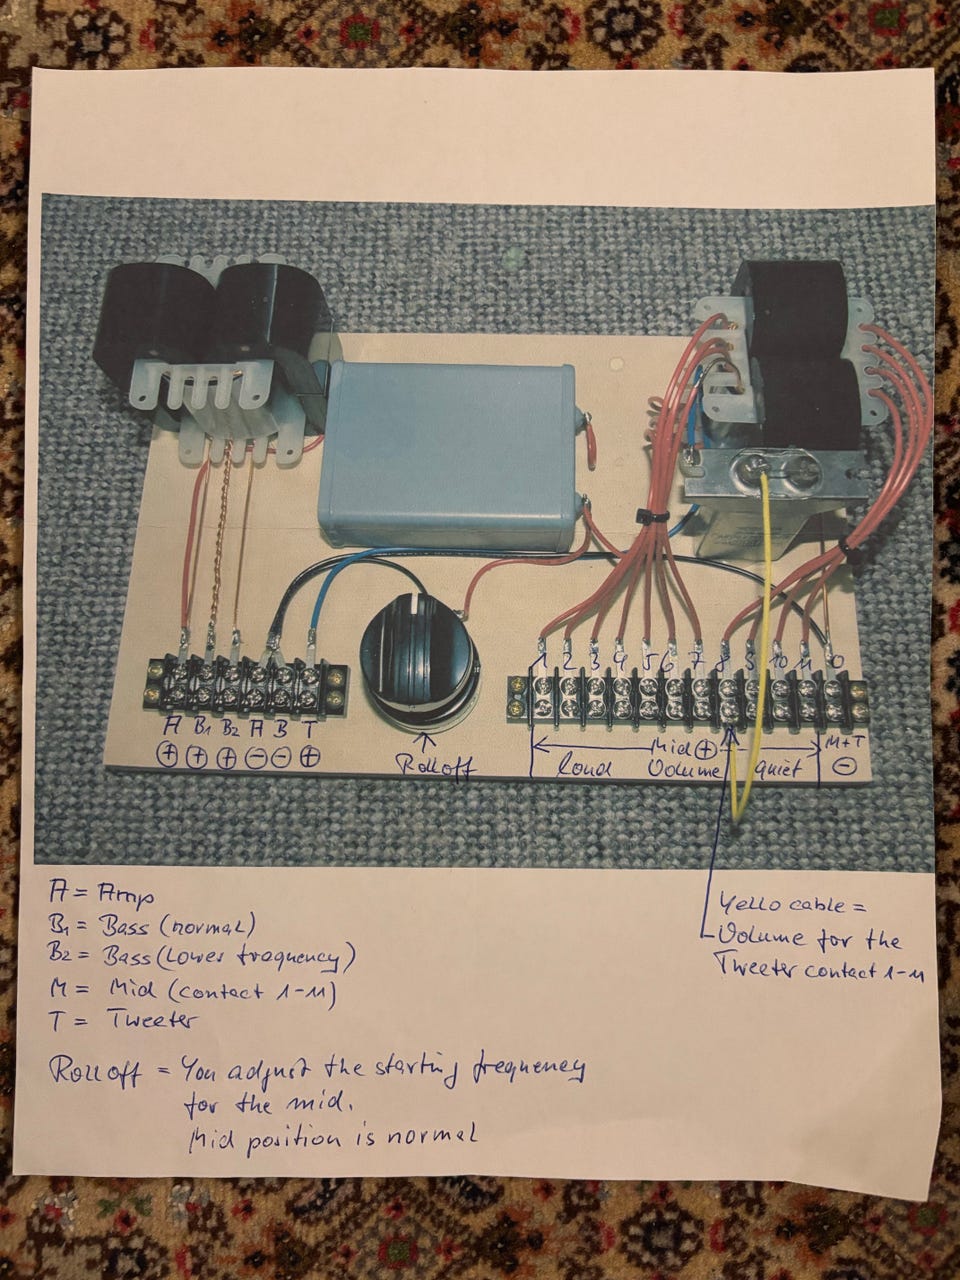 1 2 3 4 5 6 7 8 9 10 11 0
A B1 B2 A B T
+ + + - - +
Roll off
Mid +
loud Volume quiet
M+T
-
A = Amp
B1 = Bass (normal)
B2 = Bass (Lower frequency)
M = Mid (contact 1-11)
T = Tweeter
Yello cable =
Volume for the
Tweeter contact 1-11
Roll off = You adjust the starting frequency
for the mid.
Mid position is normal